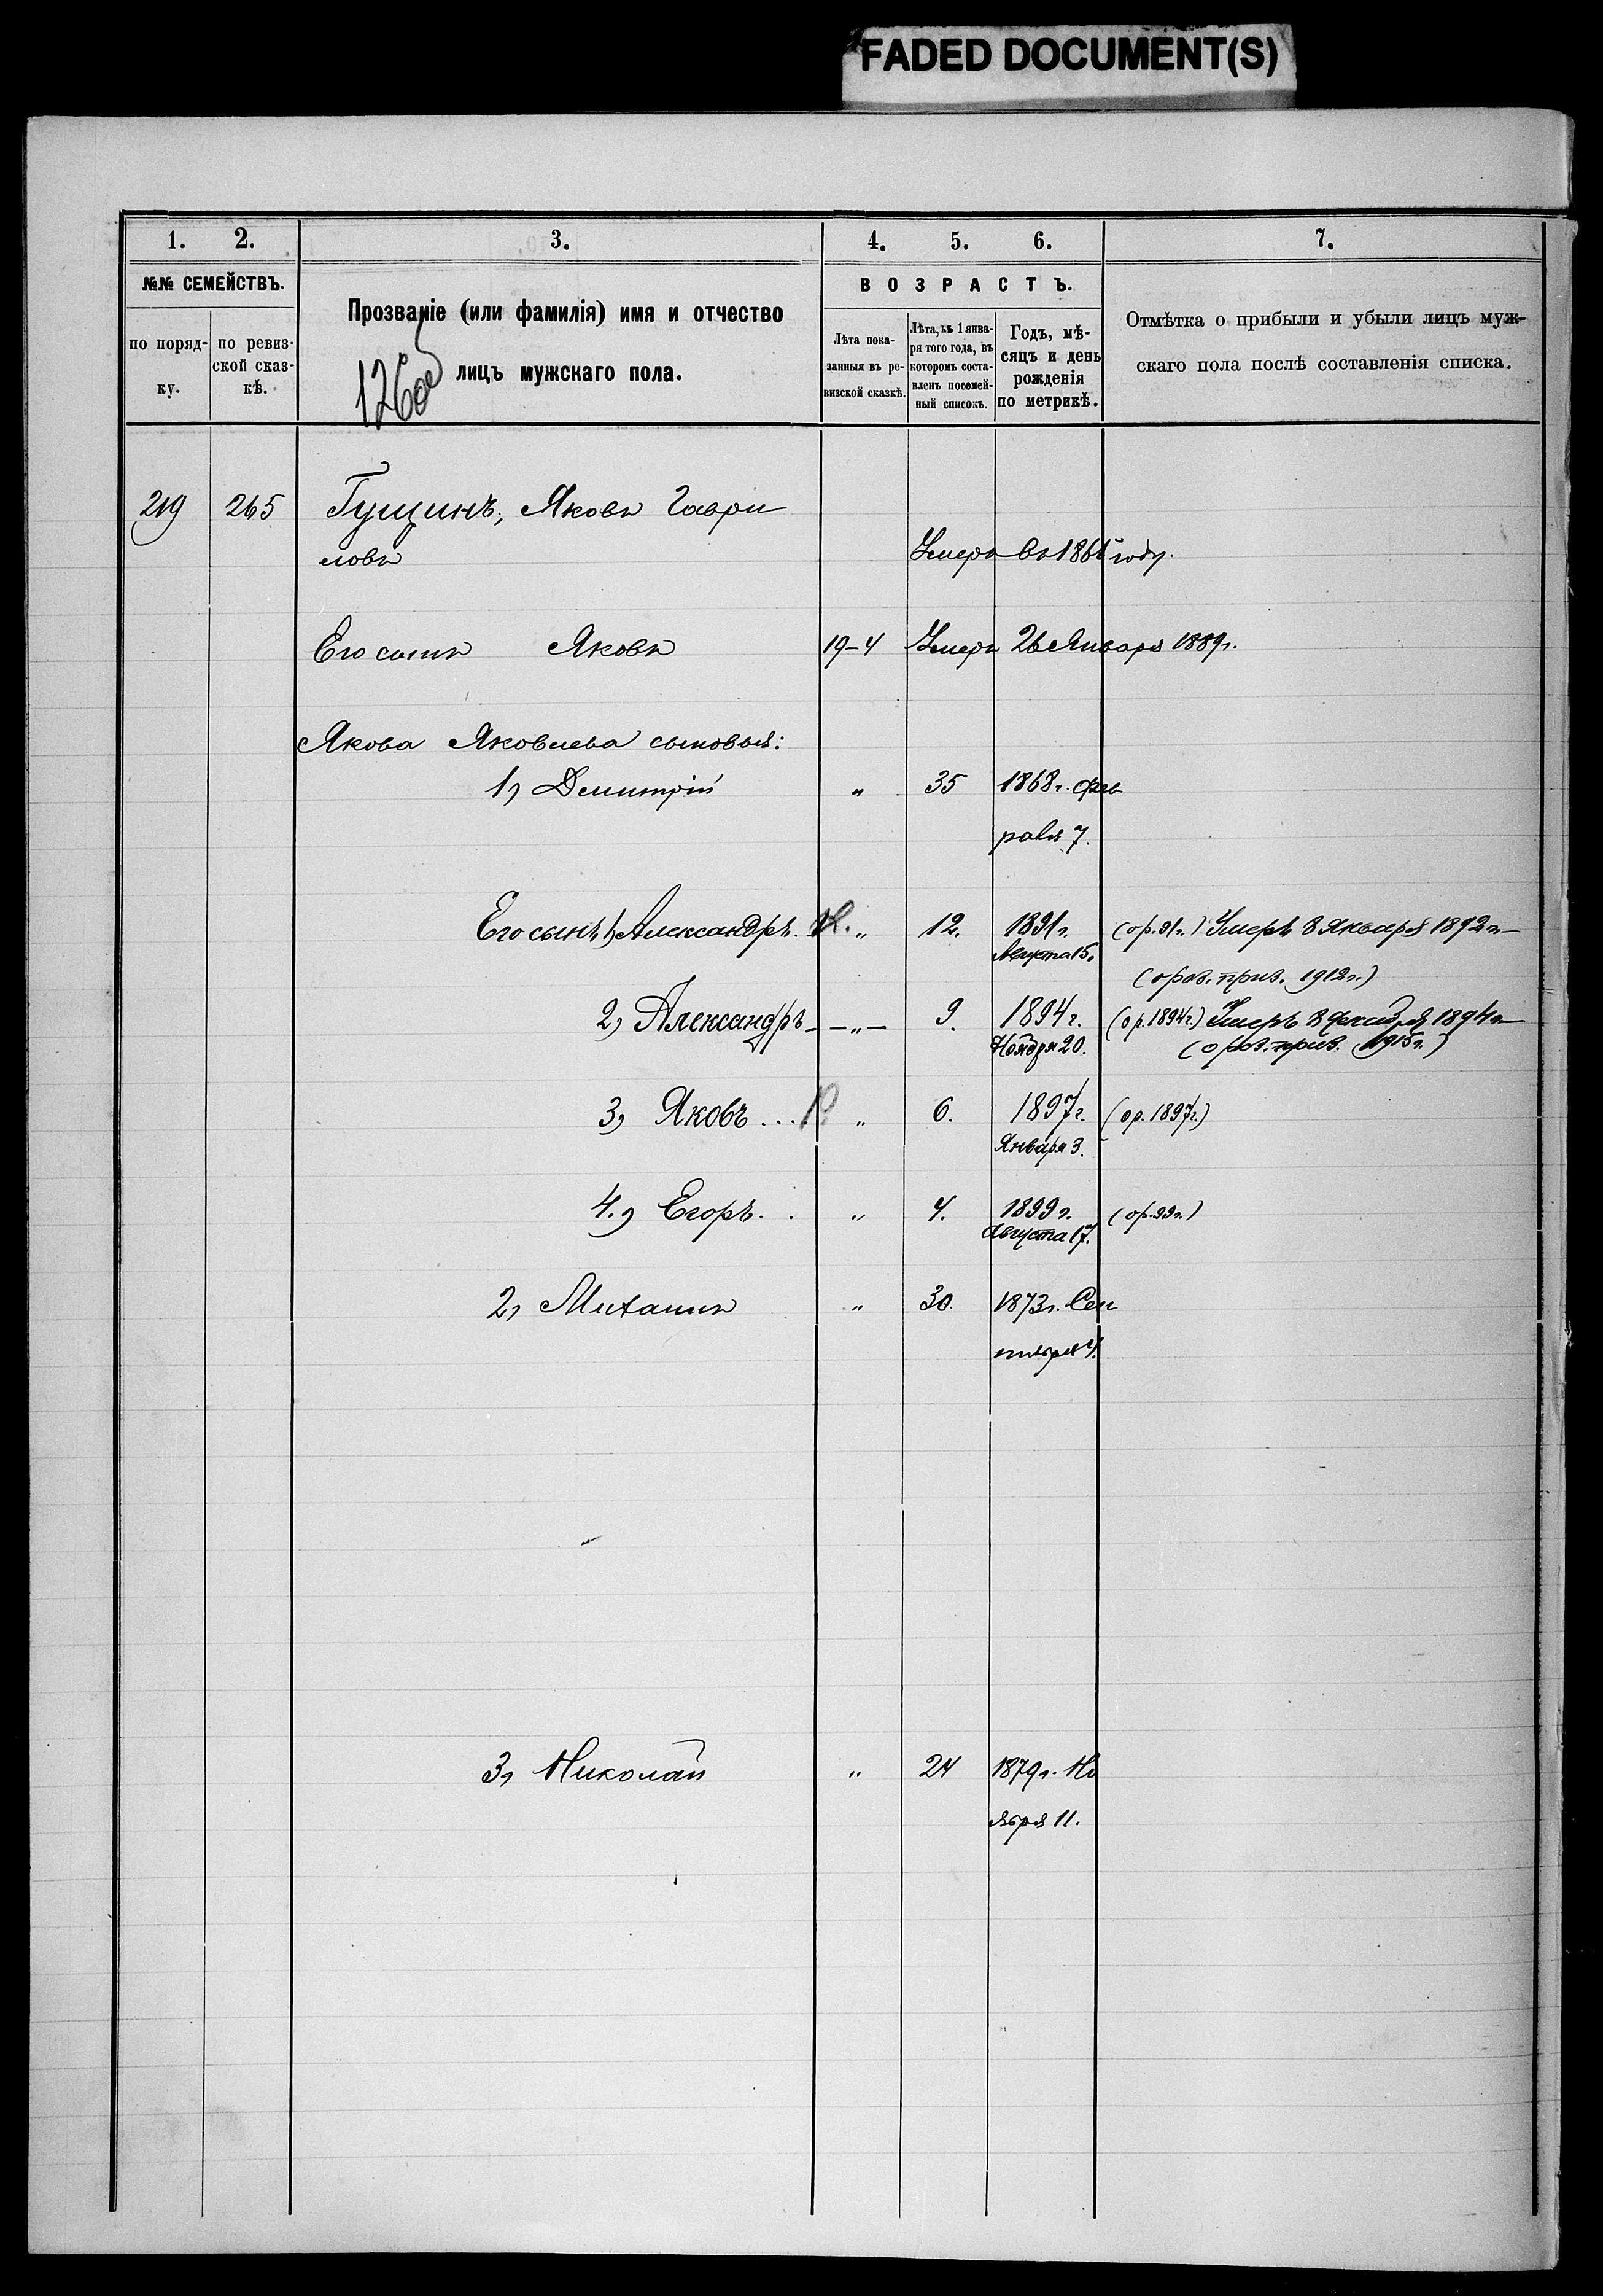 FADED DOCUMENT(S)
1. 2. 3. 4. 5. 6. 7.
№№ СЕМЕЙСТВЪ.
по поряд-
ку.
по ревиз-
ской сказ-
кѣ.
Прозваніе (или фамилія) имя и отчество
лицъ мужскаго пола.
126об
ВОЗРАСТЪ.
Лѣта пока-
занныя въ ре-
визской сказкѣ.
Лѣта, къ 1 янва-
ря того года, въ
которомъ соста-
вленъ посемей-
ный списокъ.
Годъ, мѣ-
сяцъ и день
рожденія
по метрикѣ.
Отмѣтка о прибыли и убыли лицъ муж-
скаго пола послѣ составленія списка.
219 265 Гущинъ, Яковъ Гаври
ловъ Умеръ въ году.
Его сынъ Яковъ 19-4 Умеръ 26 Января 1889г.
Якова Яковлева сыновья:
1, Дмитрій „ 35 1868г. Фев
раля 7.
Его сынъ 1, Александръ. „ 12. 1891г. (ор. 91г.) Умеръ 8 Января 1892г.
Августа 15.
(о раз. приз. 1912г.)
2, Александръ - - „ - 9. 1894г. (ор. 1894г.) Умеръ 8 Декабря 1894г.
Ноября 20. (о раз. приз. 1915г.)
3, Яковъ... „ 6. 1897г. (ор. 1897г.)
Января 3.
4., Егоръ. . „ 4. 1899г. (ор. 99г.)
Августа 17.
2, Михаилъ „ 30. 1873г. Сен
тября 4.
3, Николай „ 24 1879г. Но
ября 11.